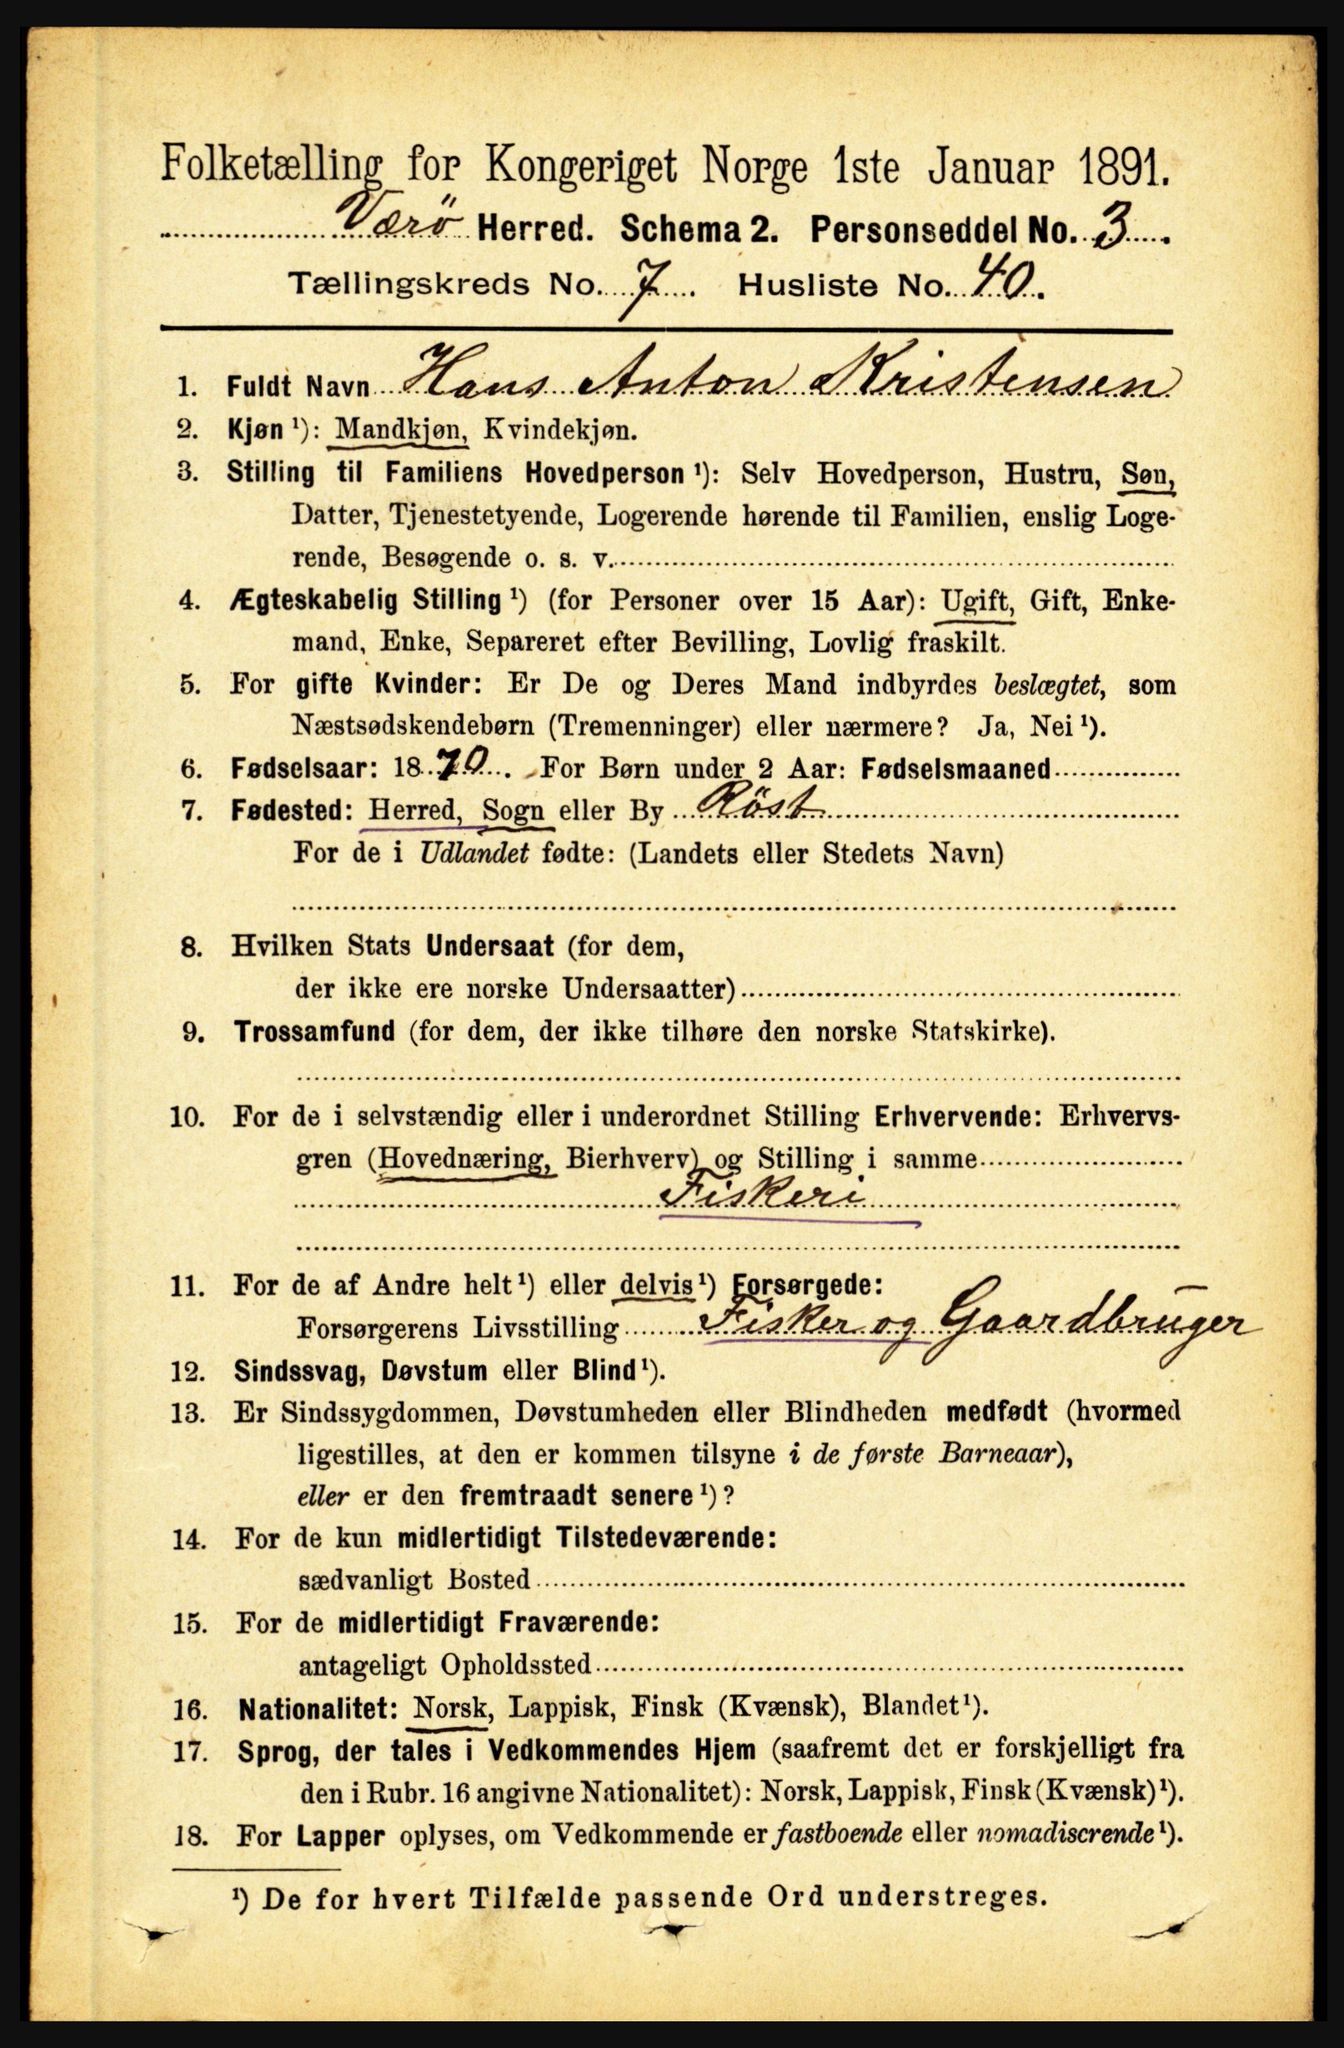 Folketælling for Kongeriget Norge 1ste Januar 1891.
Værö Herred. Schema 2. Personseddel No. 3.
Tællingskreds No. 7. Husliste No. 40.
1. Fuldt Navn Hans Anton Kristensen
2. Kjøn ¹): Mandkjøn, Kvindekjøn.
3. Stilling til Familiens Hovedperson ¹): Selv Hovedperson, Hustru, Søn,
Datter, Tjenestetyende, Logerende hørende til Familien, enslig Loge-
rende, Besøgende o. s. v.
4. Ægteskabelig Stilling ¹) (for Personer over 15 Aar): Ugift, Gift, Enke-
mand, Enke, Separeret efter Bevilling, Lovlig fraskilt.
5. For gifte Kvinder: Er De og Deres Mand indbyrdes beslægtet, som
Næstsødskendebørn (Tremenninger) eller nærmere? Ja, Nei ¹).
6. Fødselsaar: 1870. For Børn under 2 Aar: Fødselsmaaned
7. Fødested: Herred, Sogn eller By Röst
For de i Udlandet fødte: (Landets eller Stedets Navn)
8. Hvilken Stats Undersaat (for dem,
der ikke ere norske Undersaatter)
9. Trossamfund (for dem, der ikke tilhøre den norske Statskirke).
10. For de i selvstændig eller i underordnet Stilling Erhvervende: Erhvervs-
gren (Hovednæring, Bierhverv) og Stilling i samme
Fiskeri
11. For de af Andre helt ¹) eller delvis ¹) Forsørgede:
Forsørgerens Livsstilling Fisker og Gaardbruger
12. Sindssvag, Døvstum eller Blind ¹).
13. Er Sindssygdommen, Døvstumheden eller Blindheden medfødt (hvormed
ligestilles, at den er kommen tilsyne i de første Barneaar),
eller er den fremtraadt senere ¹)?
14. For de kun midlertidigt Tilstedeværende:
sædvanligt Bosted
15. For de midlertidigt Fraværende:
antageligt Opholdssted
16. Nationalitet: Norsk, Lappisk, Finsk (Kvænsk), Blandet ¹).
17. Sprog, der tales i Vedkommendes Hjem (saafremt det er forskjelligt fra
den i Rubr. 16 angivne Nationalitet): Norsk, Lappisk, Finsk (Kvænsk) ¹).
18. For Lapper oplyses, om Vedkommende er fastboende eller nomadiserende ¹).
¹) De for hvert Tilfælde passende Ord understreges.